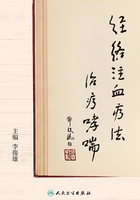 经络注血疗法
治疗哮喘
主编 李俊雄
人民卫生出版社